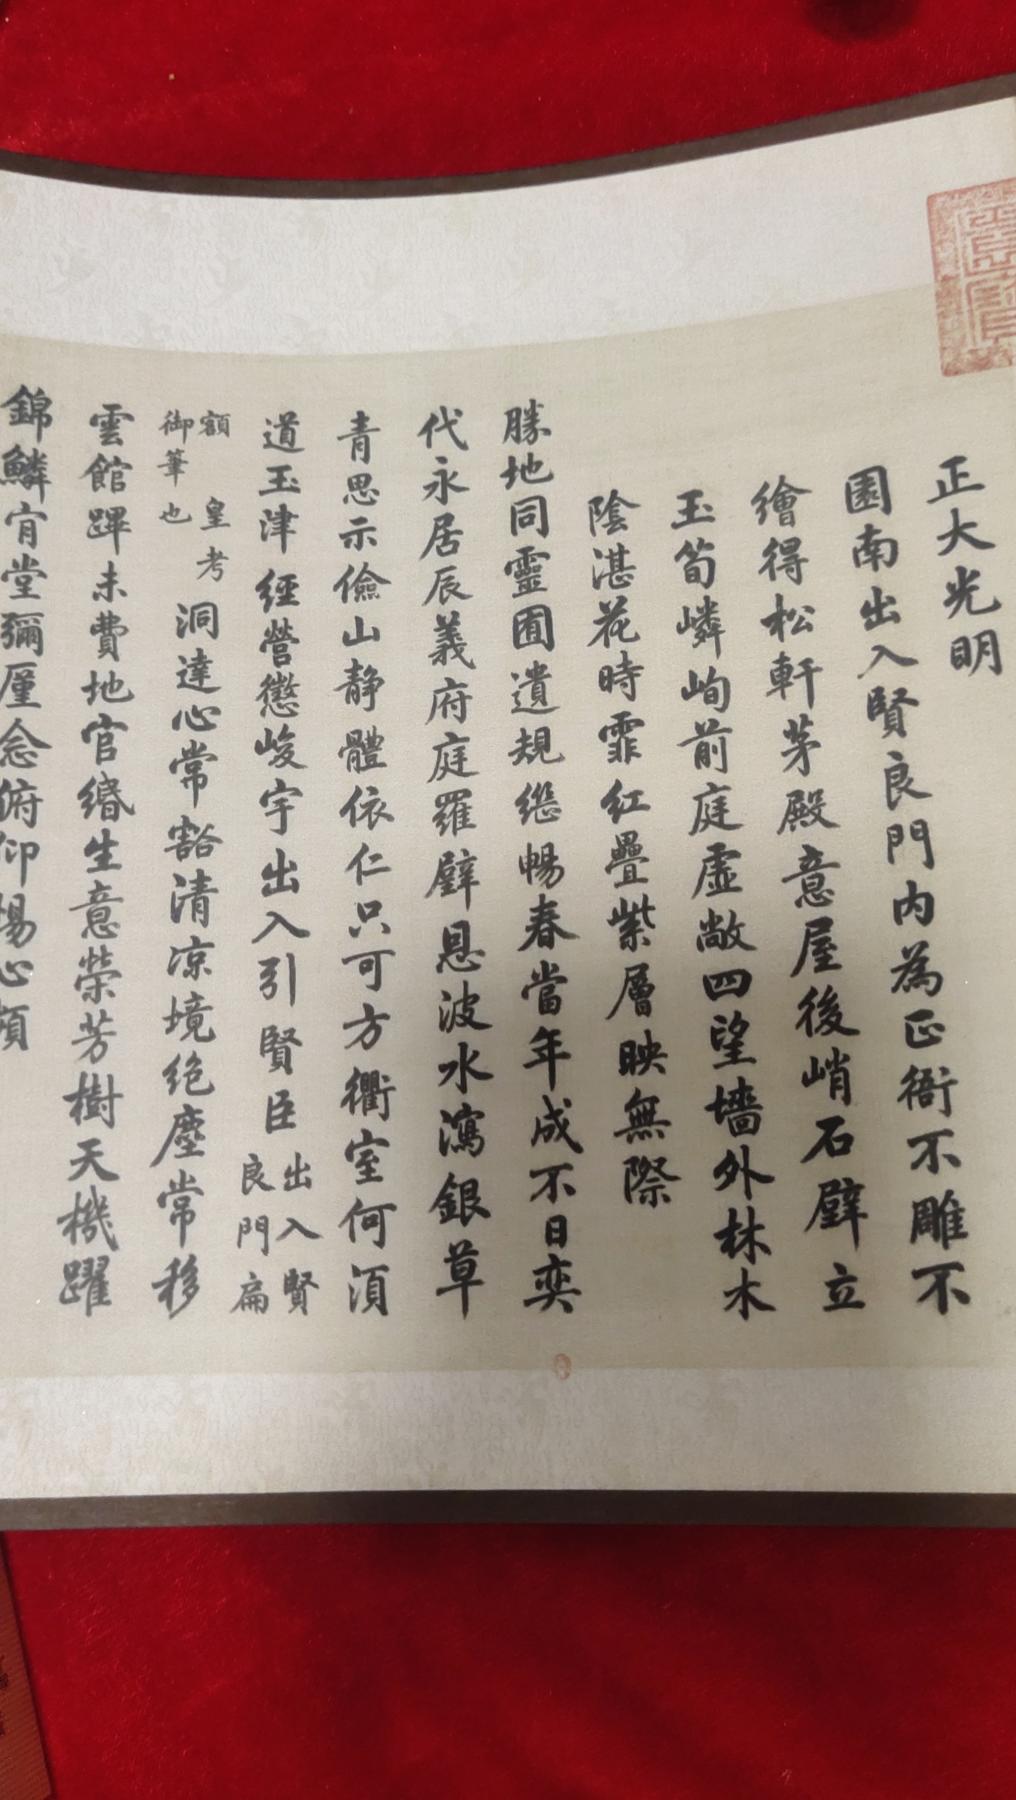 正大光明
園南出入賢良門内為正衙不雕不
繪得松軒茅殿意屋後峭石壁立
玉筍嶙峋前庭虛敞四望墻外林木
陰湛花時霏紅疊紫層映無際
勝地同靈囿遺規繼暢春當年成不日奕
代永居辰義府庭羅壁恩波水瀉銀草
青思示儉山靜體依仁只可方衢室何須
道玉津經營懲峻宇出入引賢臣
出入賢
良門扁
額 皇考
御筆也
洞達心常豁清涼境絶塵常移
雲館蹕未費地官緡生意榮芳樹天機躍
錦鱗肯堂彌厪念俯仰惕心頻